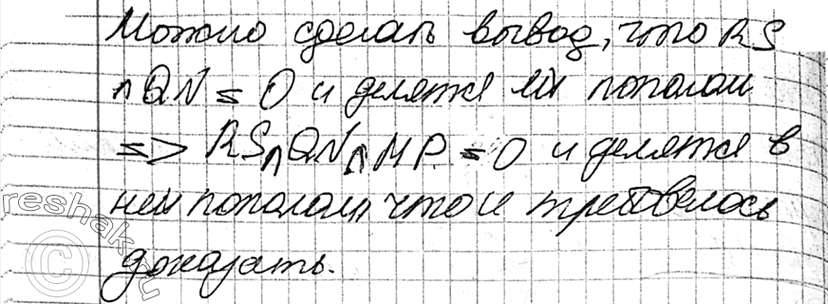 Можно сделать вывод, что RS
∩ QN = O и делятся ей пополам
=> RS ∩ QN ∩ MP = O и делятся в
ней пополам, что и требовалось
доказать.
reshak.ru
©